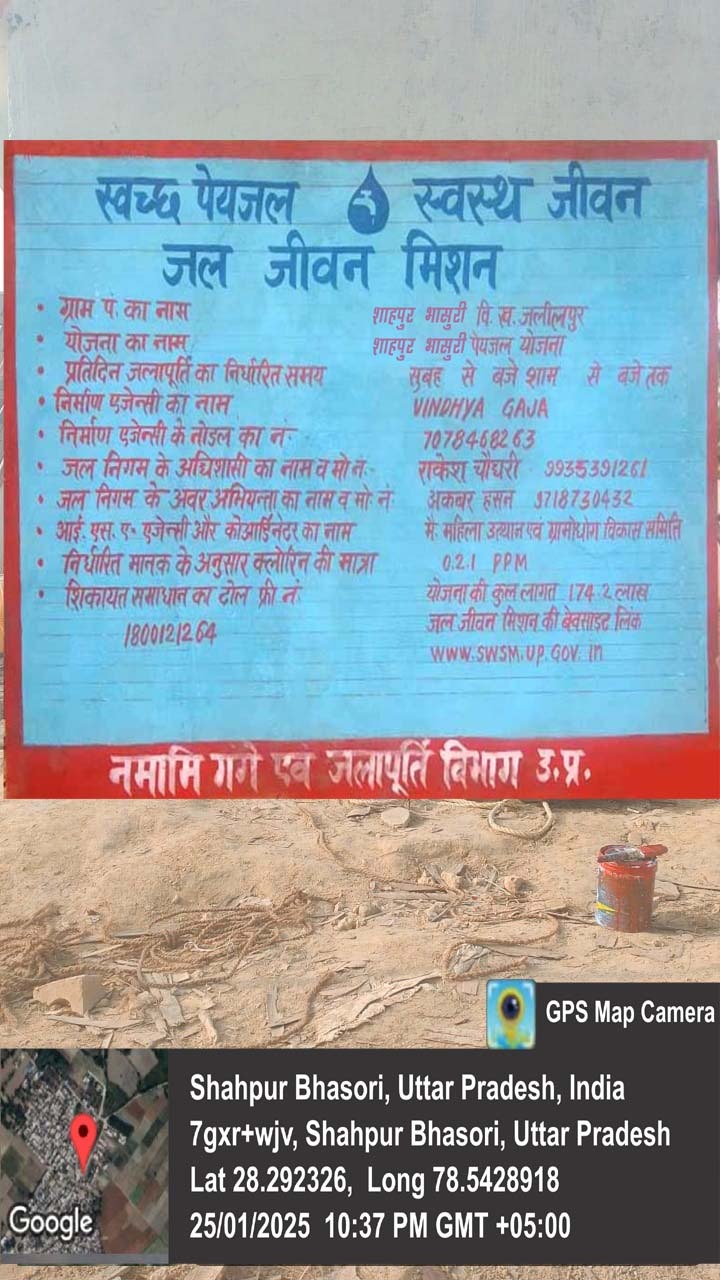 स्वच्छ पेयजल स्वस्थ जीवन
जल जीवन मिशन
• ग्राम पं. का नास शाहपुर भासुरी वि. ख. जलीलपुर
• योजना का नाम शाहपुर भासुरी पेयजल योजना
• प्रतिदिन जलापूर्ति का निर्धारित समय सुबह से बजे शाम से बजे तक
• निर्माण एजेन्सी का नाम VINDHYA GAJA
• निर्माण एजेन्सी के नोडल का नं. 7078468263
• जल निगम के अधिशासी का नाम व मो नं. राकेश चौधरी 9935391261
• जल निगम के अवर अभियन्ता का नाम व मो नं अकबर हसन 9718730432
• आई. एस. ए. एजेन्सी और कोआर्डिनेटर का नाम मै. महिला उत्थान एवं ग्रामोधोग विकास समिति
• निर्धारित मानक के अनुसार क्लोरिन की मात्रा 0.2.1 PPM
• शिकायत समाधान का टोल फ्री नं. योजना की कुल लागत 174.2 लाख
1800121264 जल जीवन मिशन की बेवसाइट लिंक
WWW.SWSM.UP.GOV.in
नमामि गंगे एवं जलापूर्ति विभाग उ.प्र.
GPS Map Camera
Shahpur Bhasori, Uttar Pradesh, India
7gxr+wjv, Shahpur Bhasori, Uttar Pradesh
Lat 28.292326, Long 78.5428918
25/01/2025 10:37 PM GMT +05:00
Google